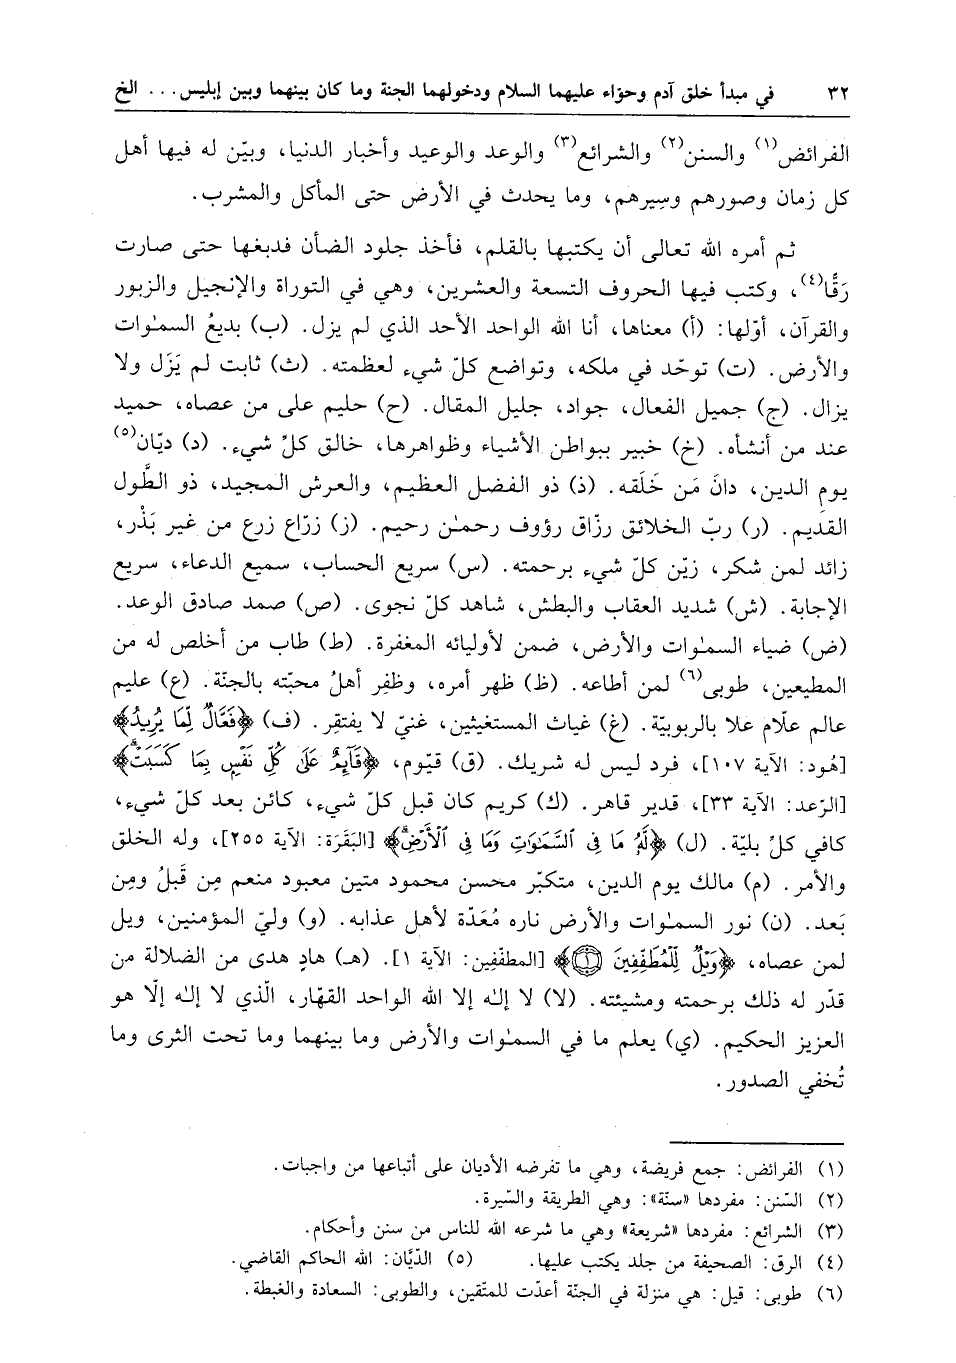 ٣٢ في مبدأ خلق آدم وحوّاء عليهما السلام ودخولهما الجنة وما كان بينهما وبين إبليس... الخ
الفرائض(١) والسنن(٢) والشرائع(٣) والوعد والوعيد وأخبار الدنيا، وبيّن له فيها أهل
كل زمان وصورهم وسِيرهم، وما يحدث في الأرض حتى المأكل والمشرب.
ثم أمره الله تعالى أن يكتبها بالقلم، فأخذ جلود الضأن فدبغها حتى صارت
رَقًّا(٤)، وكتب فيها الحروف التسعة والعشرين، وهي في التوراة والإنجيل والزبور
والقرآن، أوّلها: (أ) معناها، أنا الله الواحد الأحد الذي لم يزل. (ب) بديعُ السمٰوات
والأرض. (ت) توحّد في ملكه، وتواضع كلّ شيء لعظمته. (ث) ثابت لم يَزَل ولا
يزال. (ج) جميل الفعال، جواد، جليل المقال. (ح) حليم على من عصاه، حميد
عند من أنشأه. (خ) خبير ببواطن الأشياء وظواهرها، خالق كلّ شيء. (د) ديّان(٥)
يوم الدين، دانَ مَن خَلَقه. (ذ) ذو الفضل العظيم، والعرش المجيد، ذو الطَّول
القديم. (ر) ربّ الخلائق رزّاق رؤوف رحمٰن رحيم. (ز) زرّاع زرع من غير بَذْر،
زائد لمن شكر، زيّن كلّ شيء برحمته. (س) سريع الحساب، سميع الدعاء، سريع
الإجابة. (ش) شديد العقاب والبطش، شاهد كلّ نجوى. (ص) صمد صادق الوعد.
(ض) ضياء السمٰوات والأرض، ضمن لأوليائه المغفرة. (ط) طاب من أخلص له من
المطيعين، طوبى(٦) لمن أطاعه. (ظ) ظهر أمره، وظفر أهلُ محبّته بالجنّة. (ع) عليم
عالم علّام علا بالربوبيّة. (غ) غياث المستغيثين، غنيّ لا يفتقر. (ف) ﴿فَعَّالٌ لِّمَا يُرِيدُ﴾
[هُود: الآية ١٠٧]، فرد ليس له شريك. (ق) قيّوم، ﴿قَآئِمٌ عَلَىٰ كُلِّ نَفْسٍ بِمَا كَسَبَتْ﴾
[الرّعد: الآية ٣٣]، قدير قاهر. (ك) كريم كان قبل كلّ شيء، كائن بعد كلّ شيء،
كافي كلّ بليّة. (ل) ﴿لَّهُ مَا فِى ٱلسَّمَٰوَٰتِ وَمَا فِى ٱلْأَرْضِ﴾ [البَقَرَة: الآية ٢٥٥]، وله الخلق
والأمر. (م) مالك يوم الدين، متكبّر محسن محمود متين معبود منعم مِن قَبلُ ومِن
بَعد. (ن) نور السمٰوات والأرض ناره مُعَدّة لأهل عذابه. (و) وليّ المؤمنين، ويل
لمن عصاه، ﴿وَيْلٌ لِّلْمُطَفِّفِينَ ١﴾ [المطفّفِين: الآية ١]. (هـ) هادٍ هدى من الضلالة من
قدّر له ذلك برحمته ومشيئته. (لا) لا إلٰه إلا الله الواحد القهّار، الّذي لا إلٰه إلّا هو
العزيز الحكيم. (ي) يعلم ما في السمٰوات والأرض وما بينهما وما تحت الثرى وما
تُخفي الصدور.
(١) الفرائض: جمع فريضة، وهي ما تفرضه الأديان على أتباعها من واجبات.
(٢) السّنن: مفردها «سنّة»: وهي الطريقة والسّيرة.
(٣) الشرائع: مفردها «شريعة» وهي ما شرعه الله للناس من سنن وأحكام.
(٤) الرق: الصحيفة من جلد يكتب عليها. (٥) الدّيَّان: الله الحاكم القاضي.
(٦) طوبى: قيل: هي منزلة في الجنّة أعدّت للمتّقين، والطوبى: السعادة والغبطة.